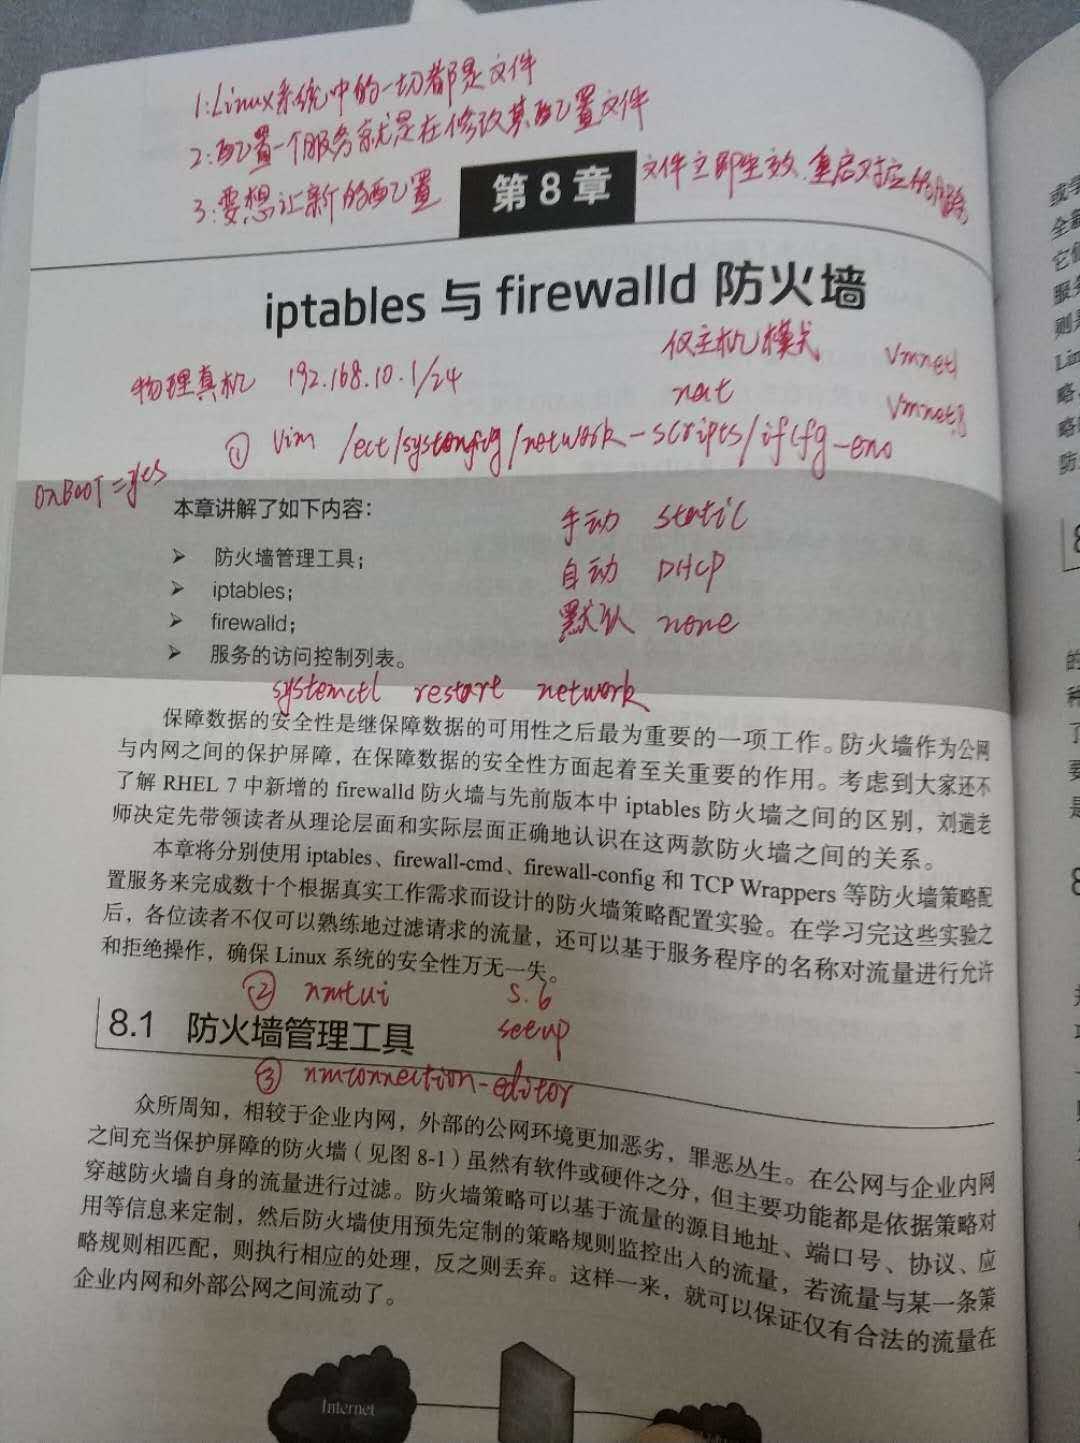 1:Linux系统中的一切都是文件
2:配置一个服务就是在修改其配置文件
3:要想让新的配置
文件立即生效,重启对应的服务
第 8 章
iptables 与 firewalld 防火墙
仅主机模式 Vmnet1
物理真机 192.168.10.1/24
nat Vmnet8
① Vim /ect/sysconfig/network-scripts/ifcfg-eno
ONBOOT=yes
本章讲解了如下内容：
手动 static
➢ 防火墙管理工具；
自动 DHCP
➢ iptables；
➢ firewalld；
默认 none
➢ 服务的访问控制列表。
systemctl restart network
保障数据的安全性是继保障数据的可用性之后最为重要的一项工作。防火墙作为公网
与内网之间的保护屏障，在保障数据的安全性方面起着至关重要的作用。考虑到大家还不
了解 RHEL 7 中新增的 firewalld 防火墙与先前版本中 iptables 防火墙之间的区别，刘遄老
师决定先带领读者从理论层面和实际层面正确地认识在这两款防火墙之间的关系。
本章将分别使用 iptables、firewall-cmd、firewall-config 和 TCP Wrappers 等防火墙策略配
置服务来完成数十个根据真实工作需求而设计的防火墙策略配置实验。在学习完这些实验之
后，各位读者不仅可以熟练地过滤请求的流量，还可以基于服务程序的名称对流量进行允许
和拒绝操作，确保 Linux 系统的安全性万无一失。
② nmtui 5.6
setup
8.1 防火墙管理工具
③ nm-connection-editor
众所周知，相较于企业内网，外部的公网环境更加恶劣，罪恶丛生。在公网与企业内网
之间充当保护屏障的防火墙（见图 8-1）虽然有软件或硬件之分，但主要功能都是依据策略对
穿越防火墙自身的流量进行过滤。防火墙策略可以基于流量的源目地址、端口号、协议、应
用等信息来定制，然后防火墙使用预先定制的策略规则监控出入的流量，若流量与某一条策
略规则相匹配，则执行相应的处理，反之则丢弃。这样一来，就可以保证仅有合法的流量在
企业内网和外部公网之间流动了。
Internet